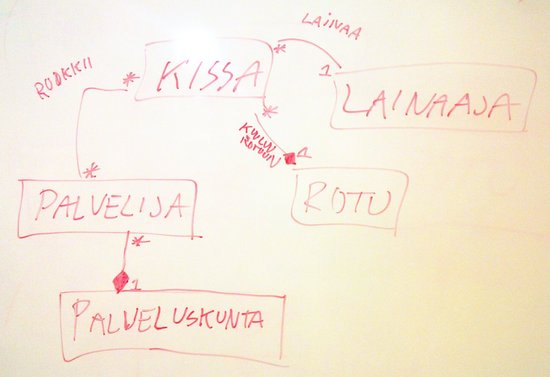 LAINAA
RUOKKII
* KISSA *
1
LAINAAJA
*
KUULUU
ROTUUN
1
ROTU
*
PALVELIJA
*
1
PALVELUSKUNTA